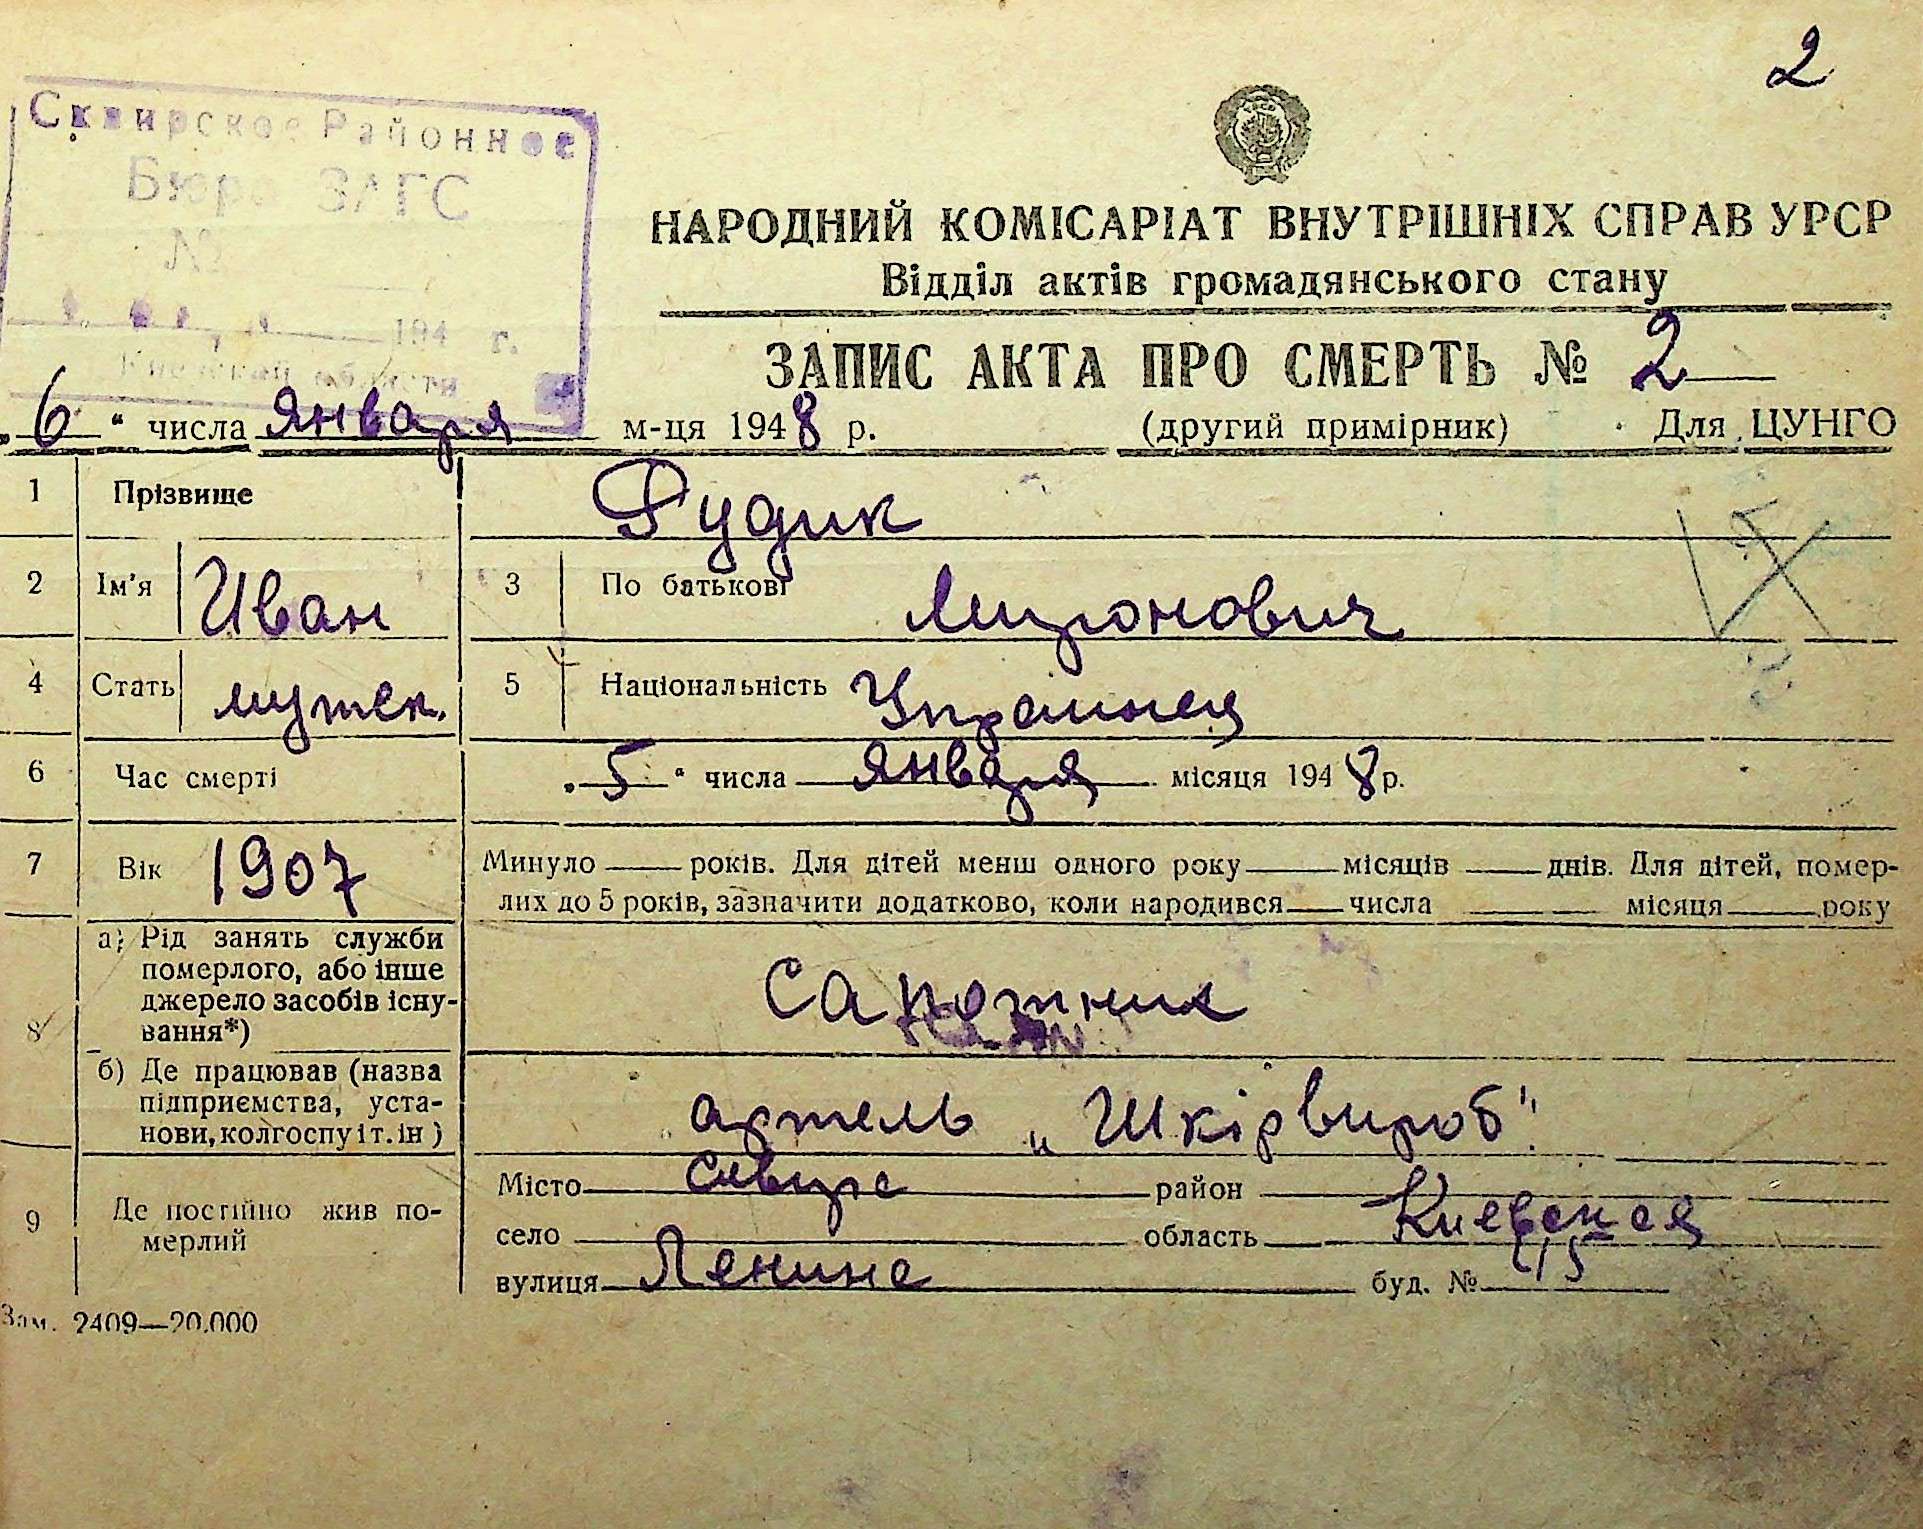 2
Сквирское Районное
Бюро ЗАГС
№
194 г.
Киевской области
НАРОДНИЙ КОМІСАРІАТ ВНУТРІШНІХ СПРАВ УРСР
Відділ актів громадянського стану
ЗАПИС АКТА ПРО СМЕРТЬ № 2
„6“ числа января м-ця 1948 р. (другий примірник) Для ЦУНГО
1 Прізвище Рудик
2 Ім'я Иван 3 По батькові Миронович
4 Стать мужск. 5 Національність Украинец
6 Час смерті „5“ числа января місяця 1948 р.
7 Вік 1907 Минуло — років. Для дітей менш одного року — місяців — днів. Для дітей, помер-
лих до 5 років, зазначити додатково, коли народився — числа — місяця — року
8 а) Рід занять служби
померлого, або інше
джерело засобів існу-
вання*) Сапожник
б) Де працював (назва
підприємства, уста-
нови, колгоспу і т. ін) артель „Шкірвироб"
9 Де постійно жив по-
мерлий
Місто Сквира район
село область Киевская
вулиця Ленина буд. № 45
Зам. 2409—20.000